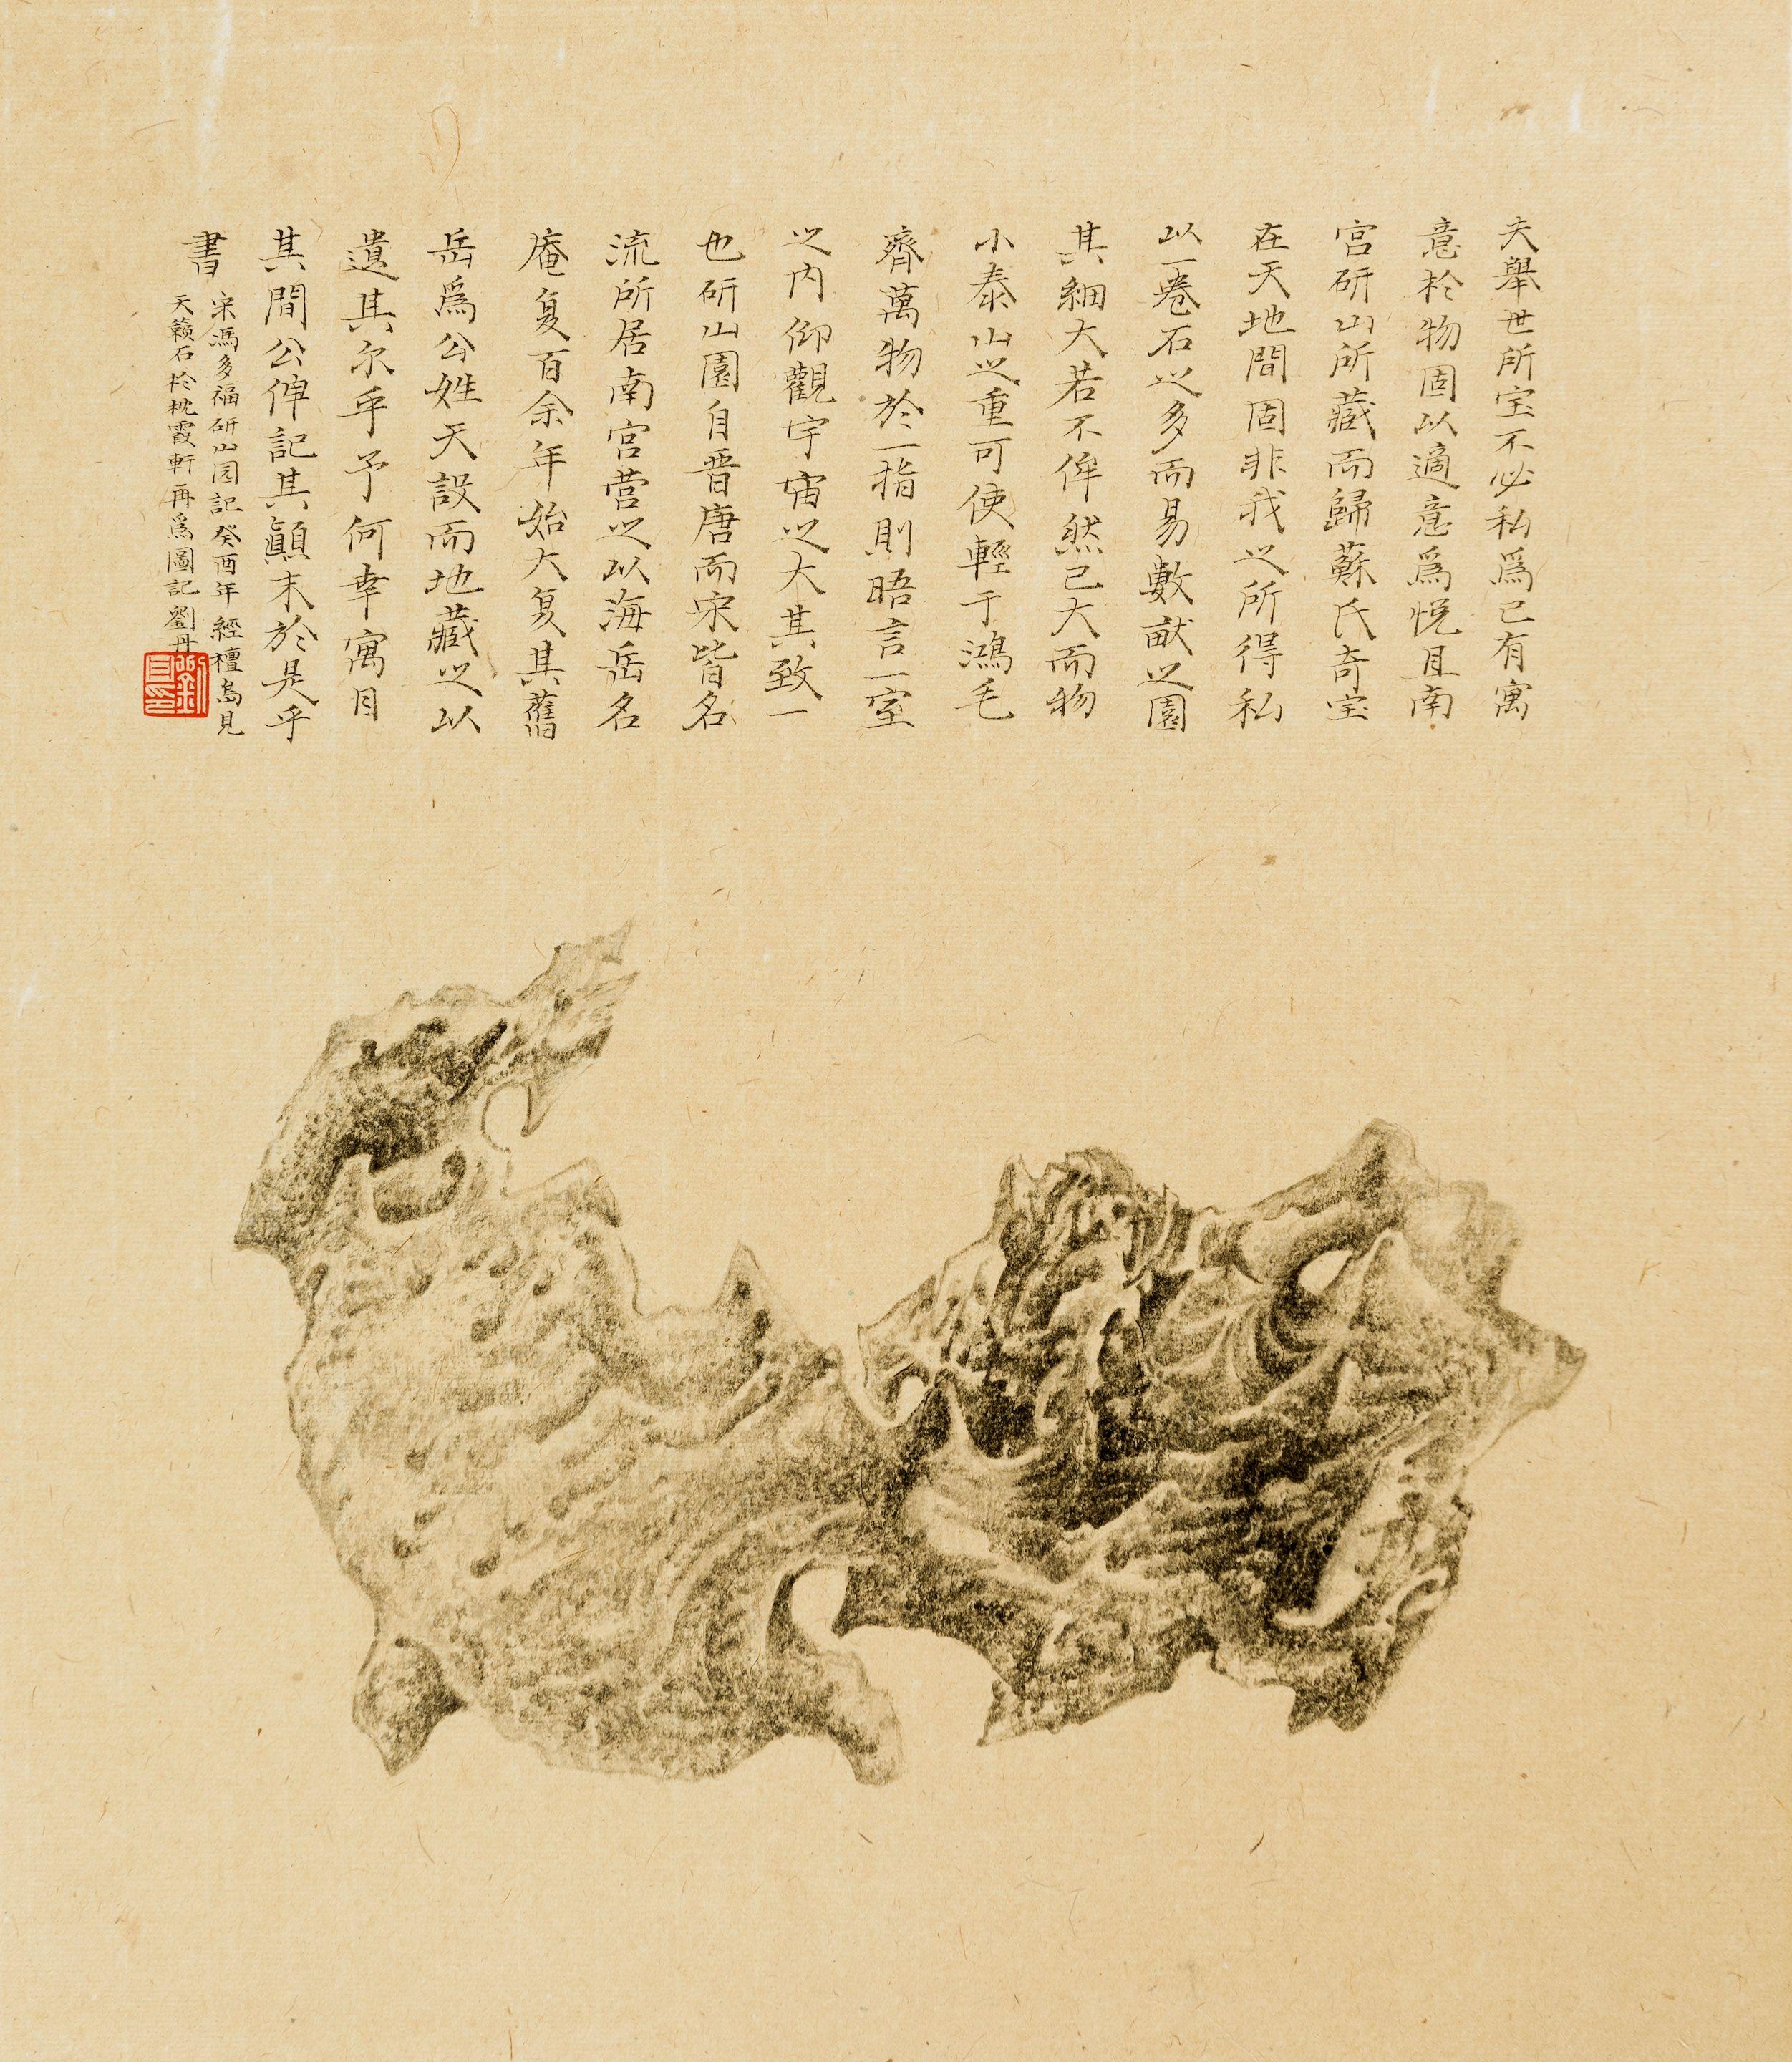 夫舉世所宝不必私為已有寓
意於物固以適意為悅且南
宮研山所藏而歸蘇氏奇宝
在天地間固非我之所得私
以一卷石之多而易數畝之園
其細大若不侔然已大而物
小泰山之重可使輕于鴻毛
齊萬物於一指則晤言一室
之内仰觀宇宙之大其致一
也研山園自晋唐而宋皆名
流所居南宮营之以海岳名
庵复百余年始大复其舊
岳為公姓天設而地藏之以
遺其尔乎予何幸寓目
其間公俾記其顛末於是乎
書
宋馮多福研山园記癸酉年經檀島見
天籟石於枕霞軒再為圖記劉丹